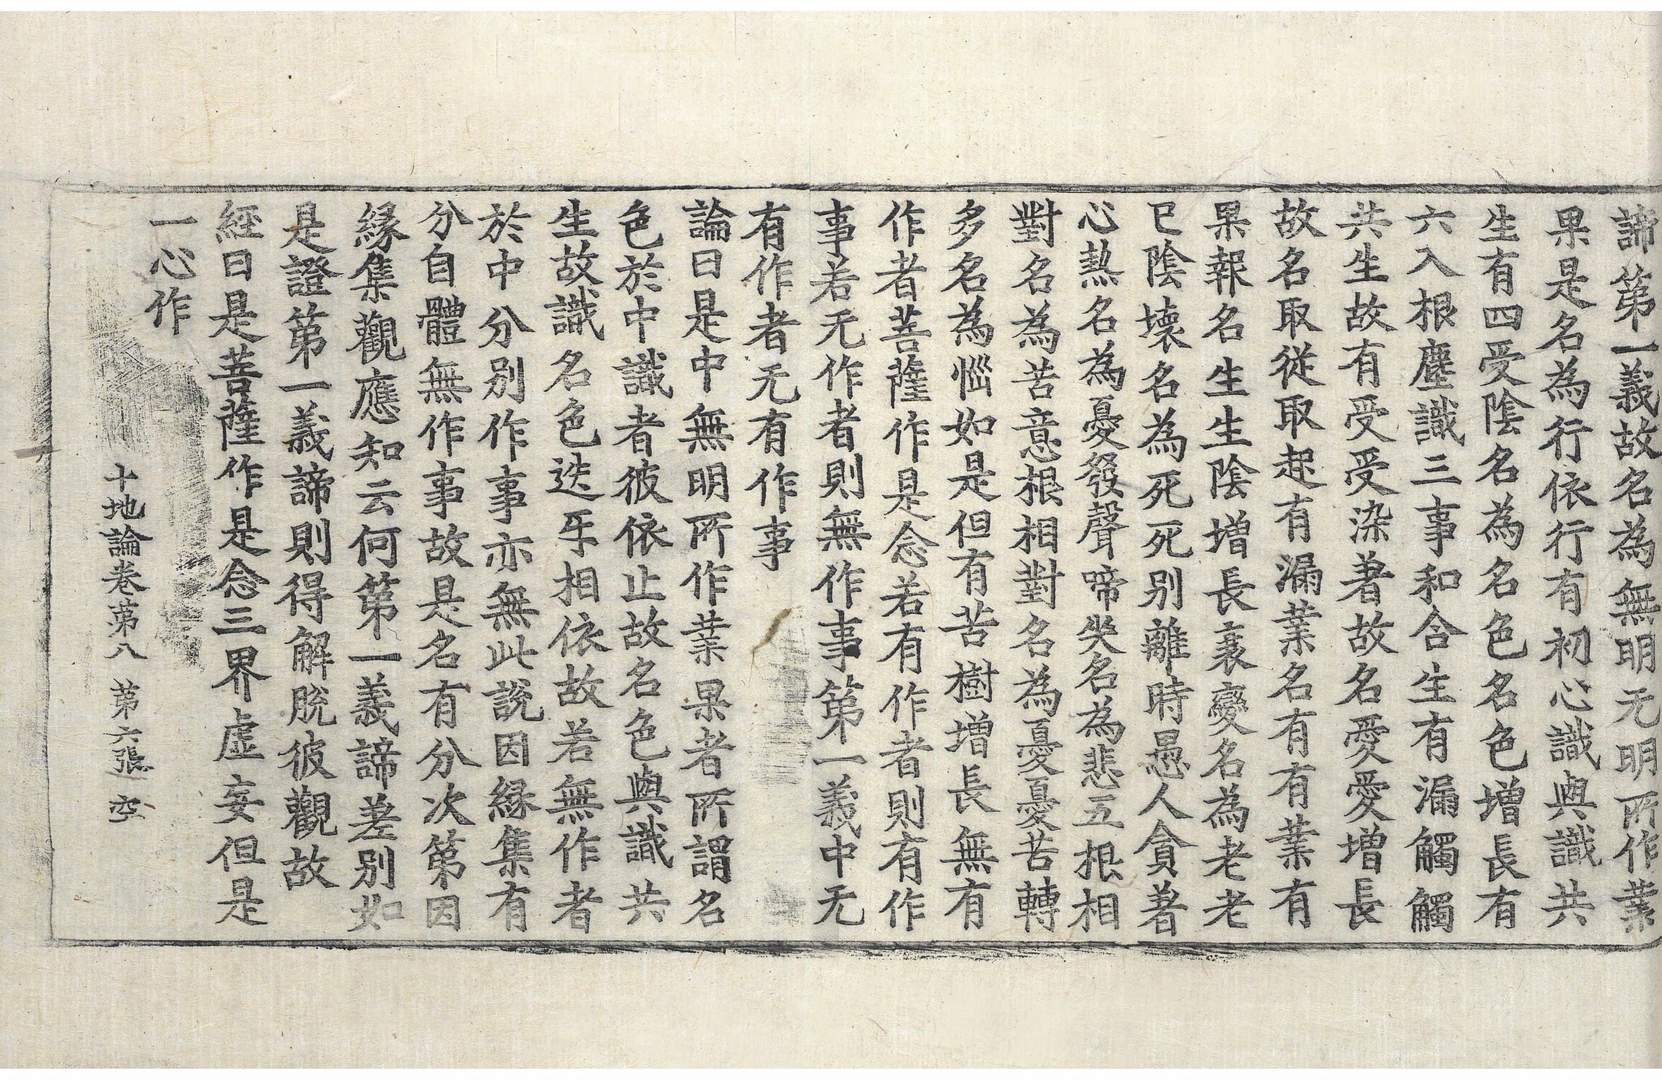 諦第一義故名為無明无明所作業
果是名為行依行有初心識與識共
生有四受陰名為名色名色增長有
六入根塵識三事和合生有漏觸觸
共生故有受受染著故名愛愛增長
故名取從取起有漏業名有有業有
果報名生生陰增長衰變名為老老
已陰壞名為死死別離時愚人貪著
心熱名為憂發聲啼哭名為悲五根相
對名為苦意根相對名為憂憂苦轉
多名為惱如是但有苦樹增長無有
作者菩薩作是念若有作者則有作
事若无作者則無作事第一義中无
有作者无有作事
論曰是中無明所作業果者所謂名
色於中識者彼依止故名色與識共
生故識名色迭乐相依故若無作者
於中分別作事亦無此說因緣集有
分自體無作事故是名有分次第因
緣集觀應知云何第一義諦差別如
是證第一義諦則得解脫彼觀故
經曰是菩薩作是念三界虛妄但是
一心作
十地論卷第八 第六張 空